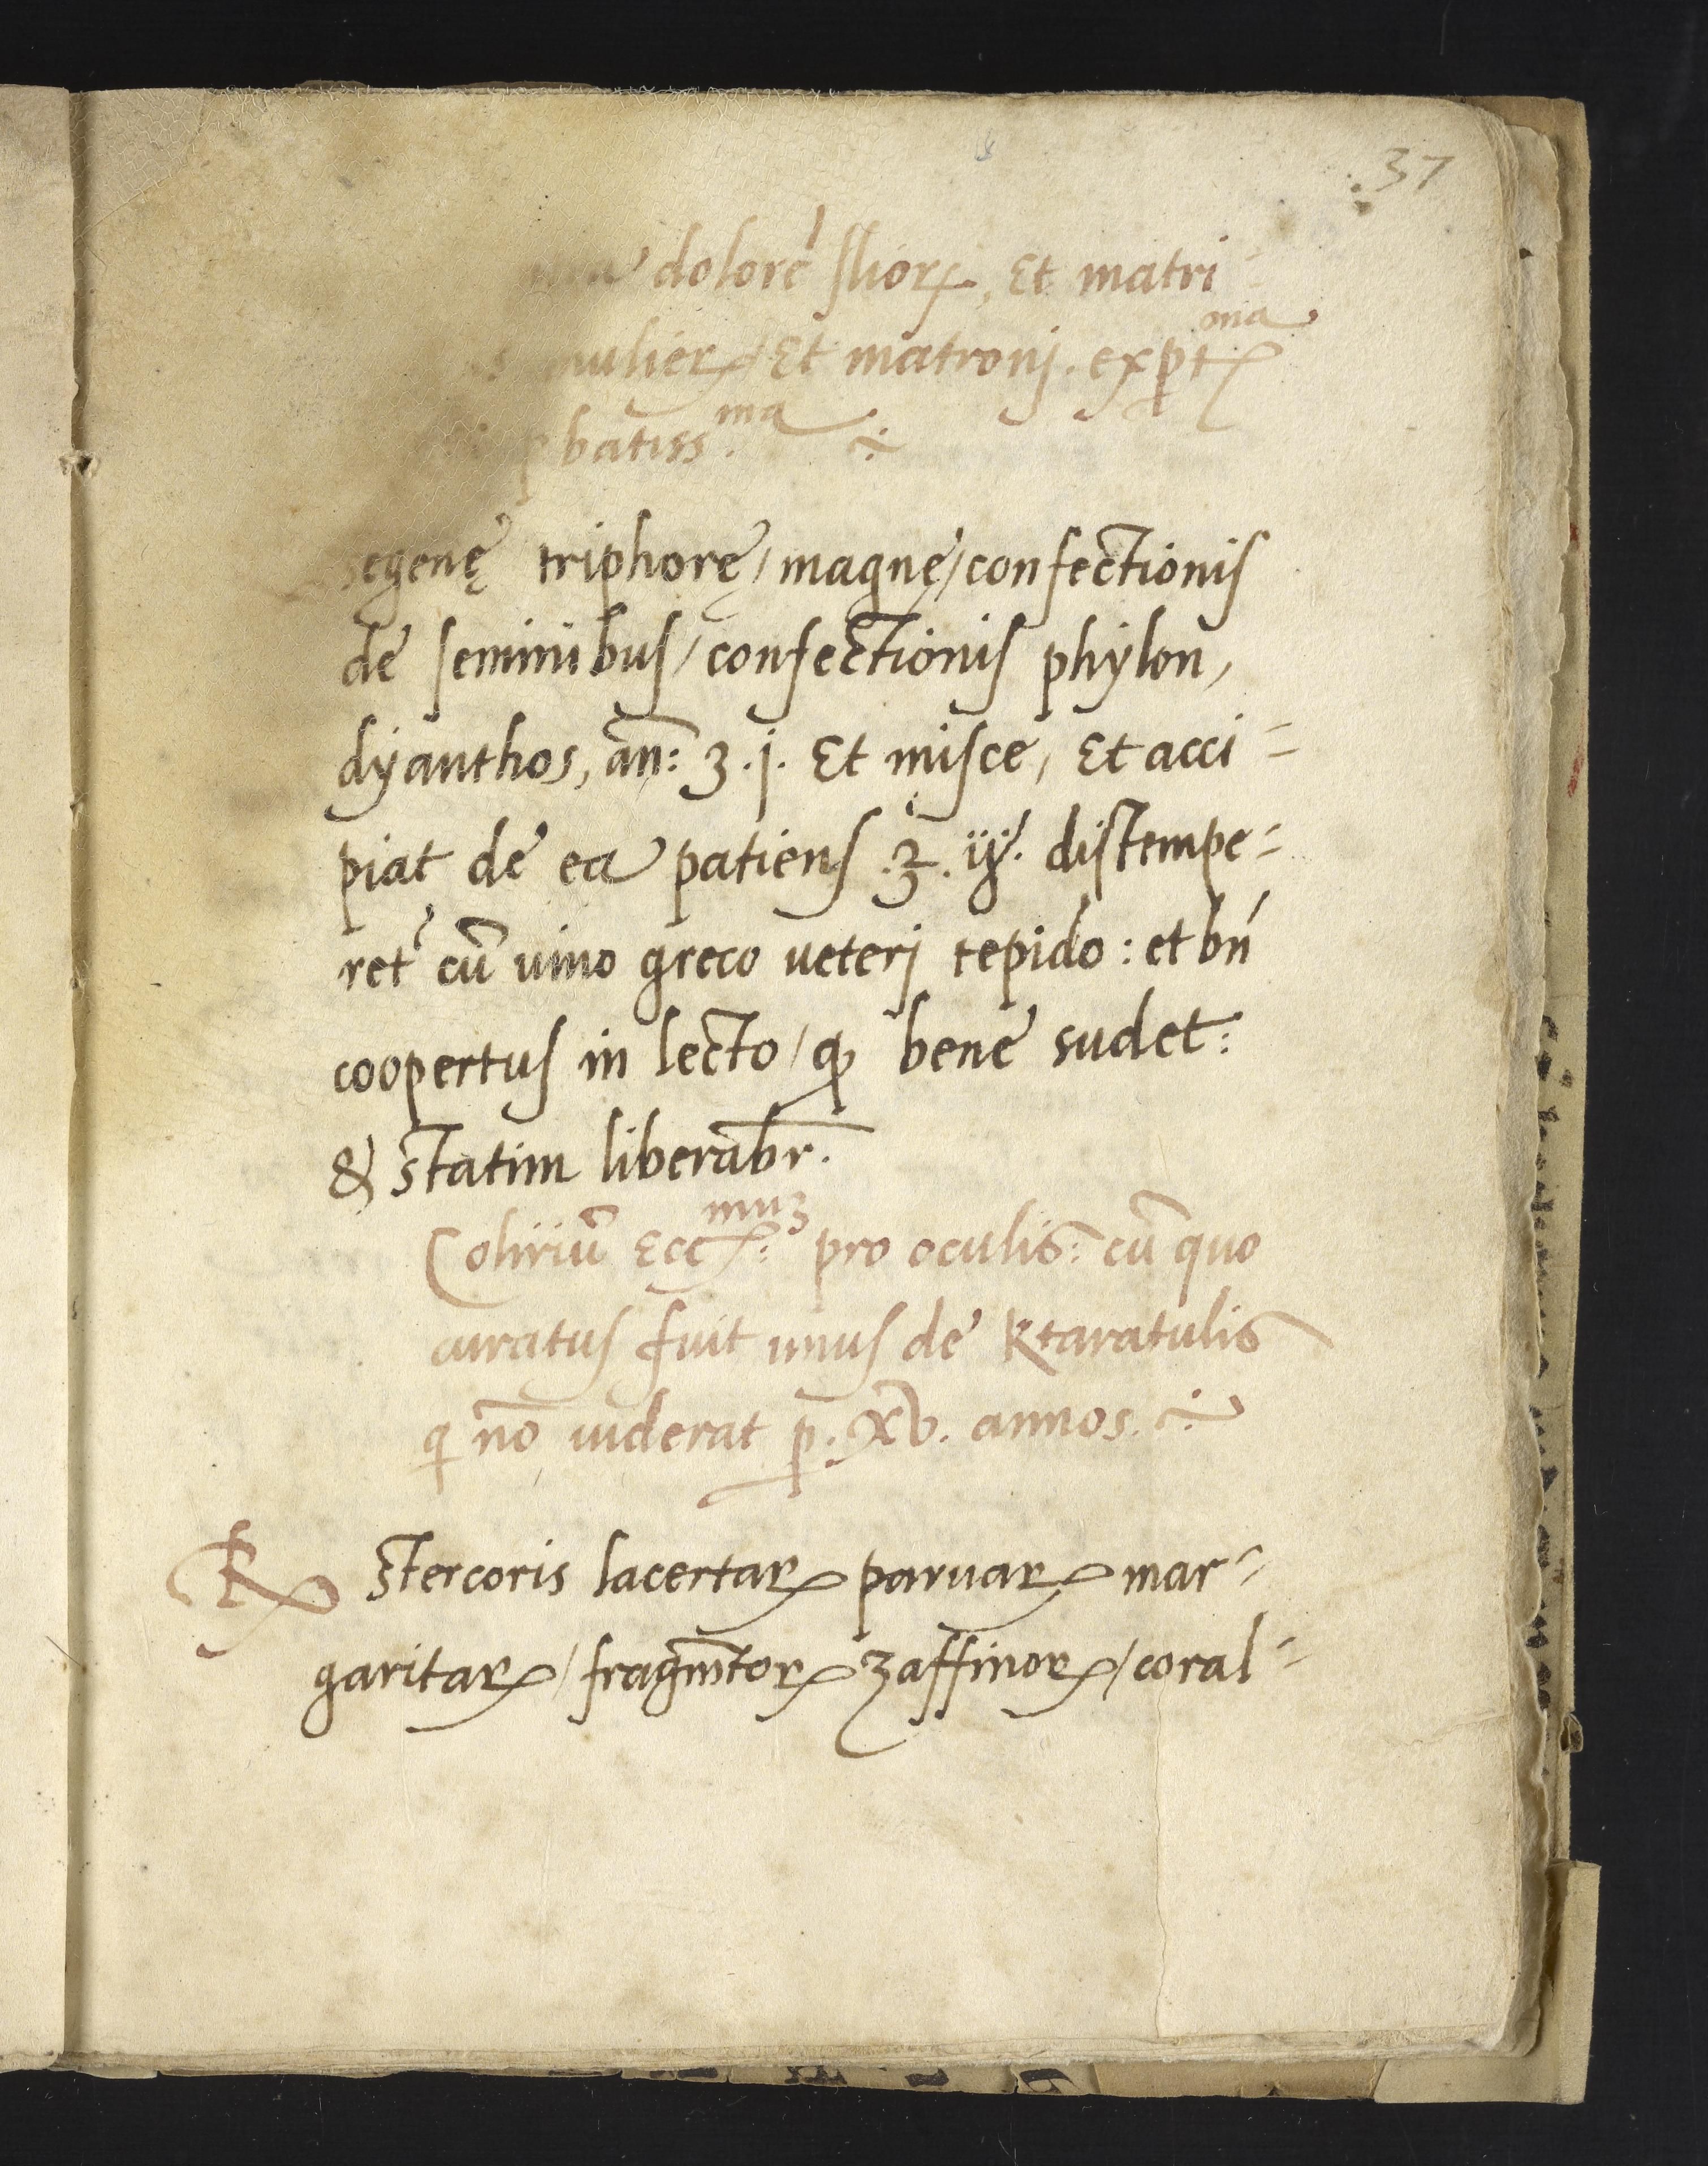 .37
dolorē fliorꝝ, Et matri
mulierꝝ Et matronį. exptma
batissma. ÷
segenę triphorę / magnę / confectionis
de seminibus / confectionis phylon,
dyanthos, an̄: ʒ.j. Et misce, Et acci=
piat de ea patiens .ʒ. iij. distempe=
ret᷑ cū uino greco ueterj tepido: et bn̄
coopertus in lecto / qꝫ bene sudet:
& statim liberabr̄.
Colıriū Eccmuʒ: pro oculis: cū quo
curatus fuit unus de Ktaratulis
q nō uiderat p̄. xv. annos. ÷
℞ Stercoris lacertarꝝ paruarꝝ mar=
garitarꝝ / fragm̄torꝝ zaffinorꝝ / coral=